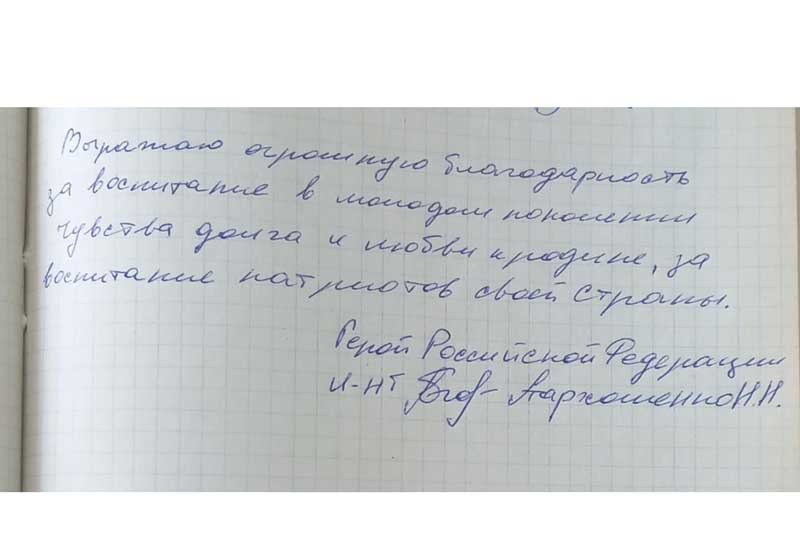 Выражаю огромную благодарность
за воспитание в молодом поколении
чувства долга и любви к родине, за
воспитание патриотов своей страны.
Герой Российской Федерации
л-нт Пархоменко Н.Н.